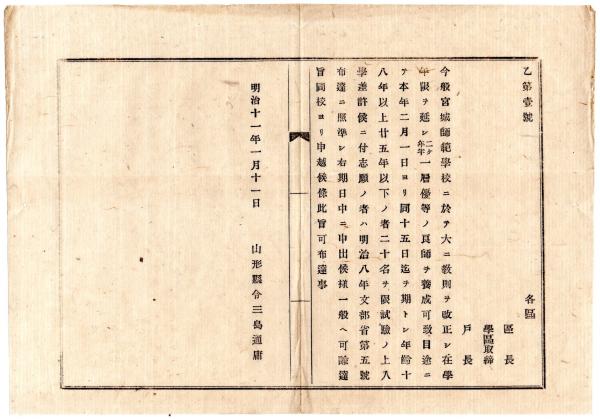 乙第壹號
各區
區長
學區取締
戸長
今般宮城師範學校ニ於テ大ニ教則ヲ改正シ在學
年限ヲ延シ二ケ年半一層優等ノ良師ヲ養成可致目途ニ
テ本年二月一日ヨリ同十五日迄ヲ期トシ年齡十
八年以上廿五年以下ノ者二十名ヲ限試驗ノ上入
學差許候ニ付志願ノ者ハ明治八年文部省第五號
布達ニ照準シ右期日中ニ申出候樣一般ヘ可諭達
旨同校ヨリ申越候條此旨可布達事
明治十一年一月十一日
山形縣令三島通庸